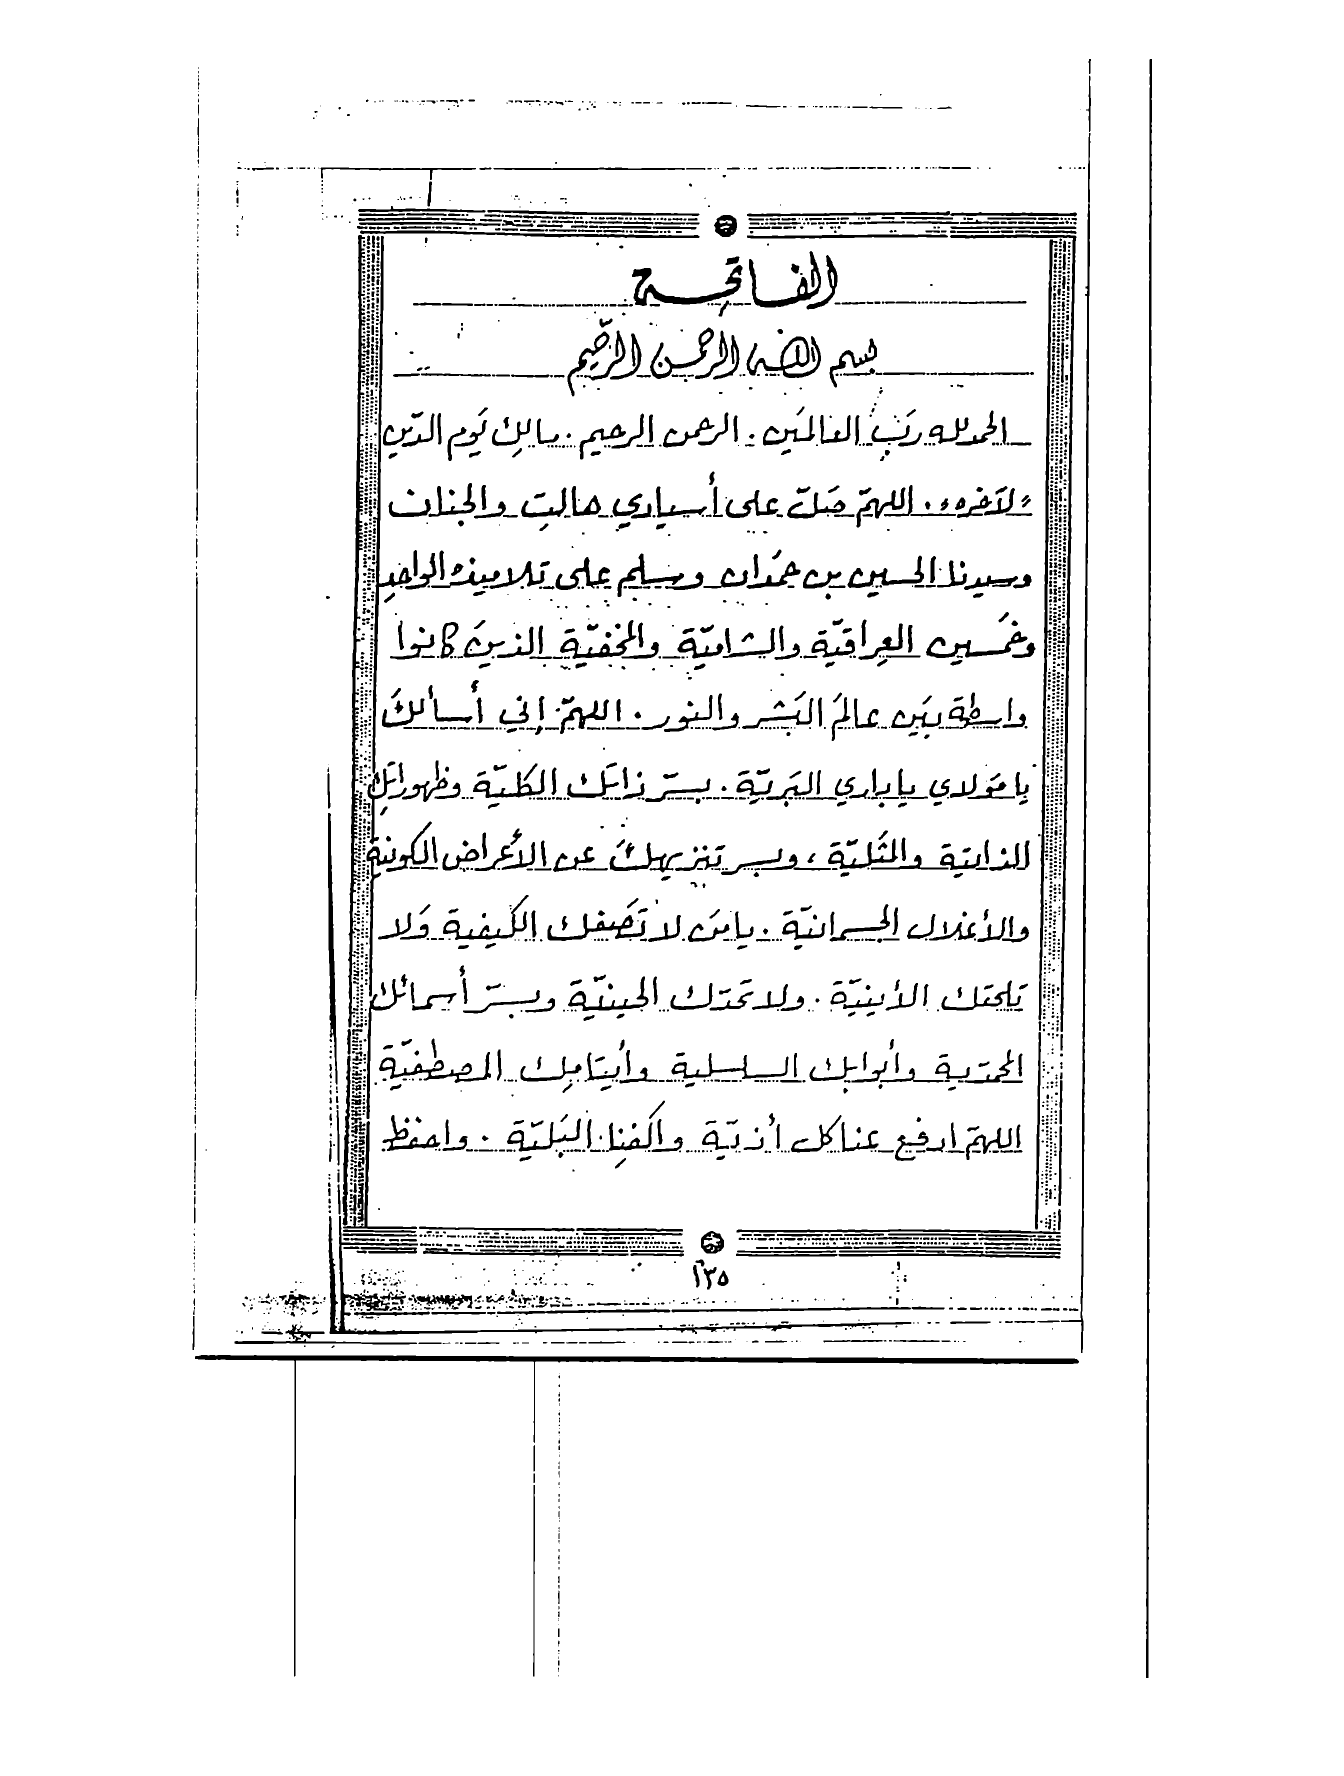 الفاتحة
بسم الله الرحمن الرحيم
الحمدلله رَبِّ العالمَين . الرحمن الرحيم . مالِك يَوم الدّين
"لآخره" . اللهمّ صَلّ على أسيادي هالتِ والجنان
وسيدنا الحسين بن حمَدان وسلم على تلاميذه الواحدِ
وخمَسين العِراقيّة والشاميّة والمخفيّة الذينَ كانوا
واسطة بيَن عالمَ البَشر والنور . اللهمّ إني أسألكَ
يامَولاي ياباري البَريّة . بسرّ ذاتك الكليّة وظهوراتِك
الذاتية والمثَليّة ، وبسر تنزيهكَ عن الأعراض الكونية
والأغلال الجسمانيّة . يامَن لا تَصِفك الكَيفية وَلا
تلحقك الأينيّة . ولا تحدّك الحينيّة وبسرّ أسمائك
المحمّدية وأبوابك السلسلية وأيتامِك المصطفيّة
اللهمّ ادفع عنا كل أذيّة واكفِنا البَليّة . واحفظ
١٣٥